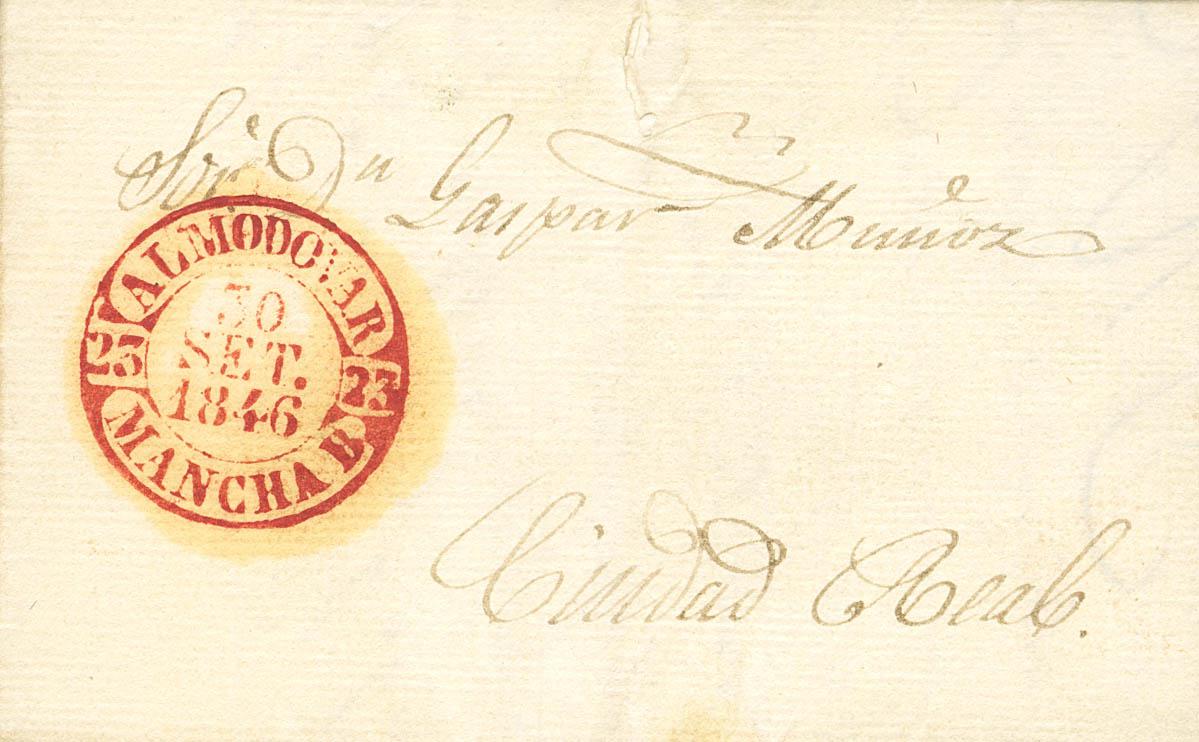 Sor. Dn Gaspar Muñoz
ALMODOVAR
30
SET.
1846
23
23
MANCHA B
Ciudad Real.